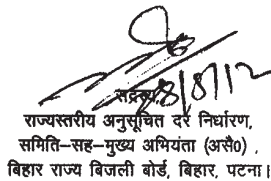 28/8/12
सदस्य,
राज्यस्तरीय अनुसूचित दर निर्धारण,
समिति–सह–मुख्य अभियंता (असै०) ,
बिहार राज्य बिजली बोर्ड, बिहार, पटना।